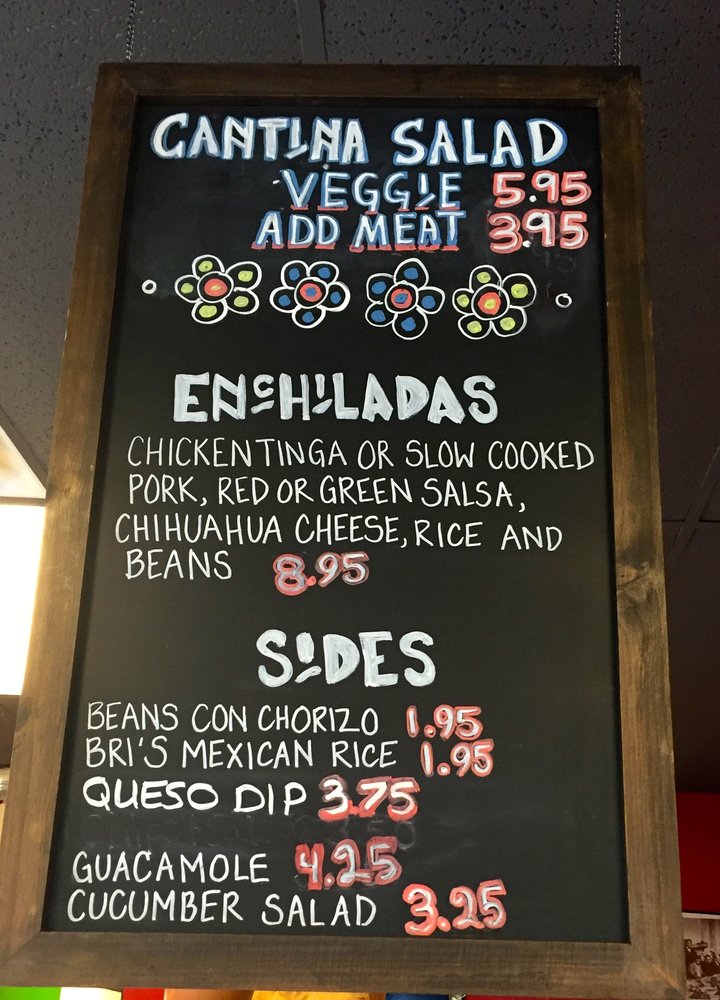 CANTINA SALAD
VEGGIE 5.95
ADD MEAT 3.95
ENCHILADAS
CHICKEN TINGA OR SLOW COOKED
PORK, RED OR GREEN SALSA,
CHIHUAHUA CHEESE, RICE AND
BEANS 8.95
SIDES
BEANS CON CHORIZO 1.95
BRI'S MEXICAN RICE 1.95
QUESO DIP 3.75
GUACAMOLE 4.25
CUCUMBER SALAD 3.25